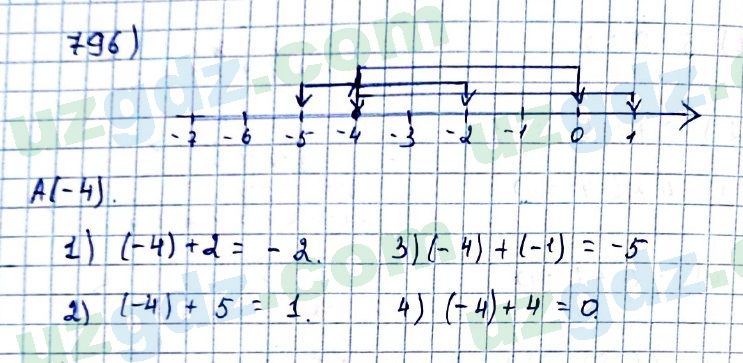 796)
-7 -6 -5 -4 -3 -2 -1 0 1
A(-4).
1) (-4)+2 = -2. 3) (-4)+(-1) = -5
2) (-4)+5 = 1. 4) (-4)+4 = 0.
uzgdz.com